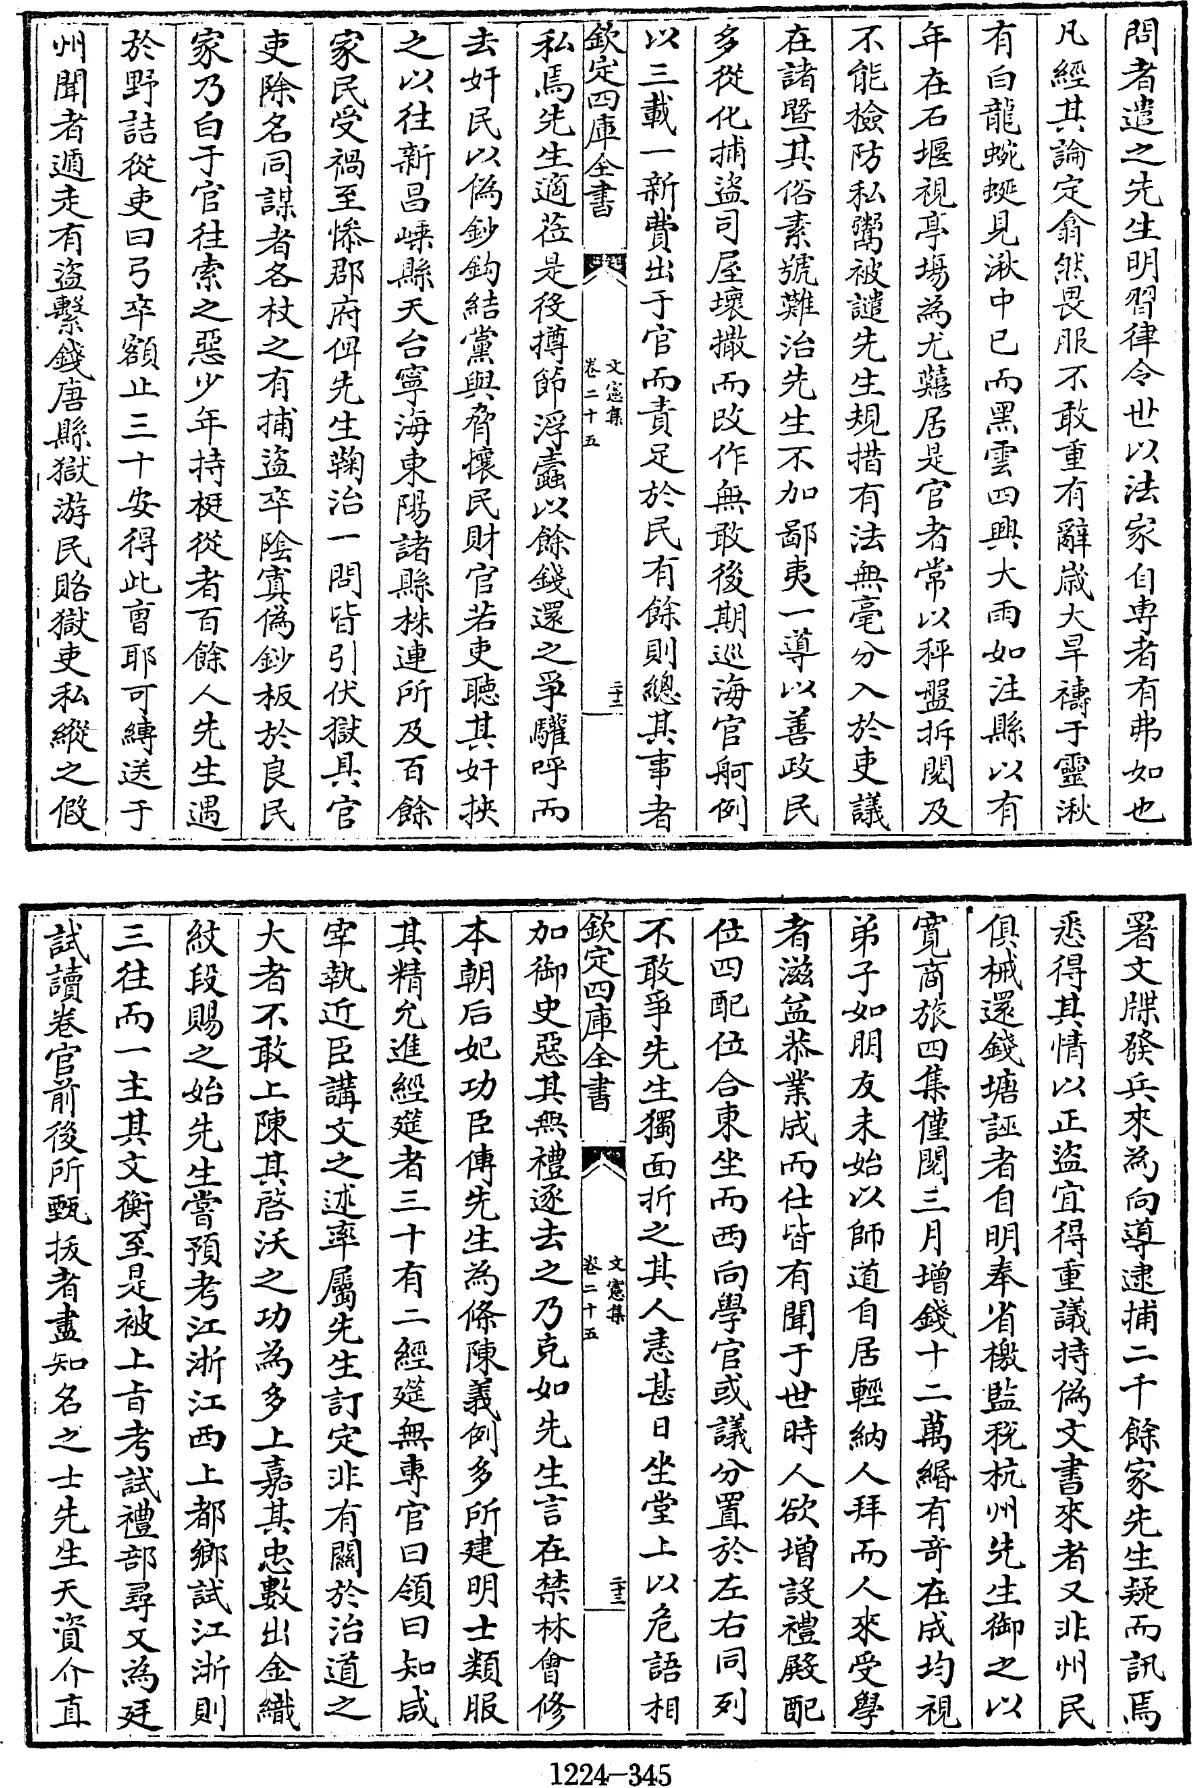 問者遣之先生明習律令世以法家自専者有弗如也
凡經其論定翕然畏服不敢重有辭嵗大旱禱于靈湫
有白龍蜿蜒見湫中已而黑雲四興大雨如注縣以有
年在石堰視亭塲為尤囏居是官者常以秤盤拆閱及
不能檢防私鬻被譴先生規措有法無毫分入於吏議
在諸暨其俗素號難治先生不加鄙夷一導以善政民
多從化捕盜司屋壞撤而改作無敢後期巡海官舸例
以三載一新費出于官而責足於民有餘則總其事者
欽定四庫全書
文憲集
卷二十五
二十二
私焉先生適莅是役撙節浮蠧以餘錢還之爭驩呼而
去奸民以偽鈔鈎結黨與脅攘民財官若吏聽其奸挾
之以往新昌嵊縣天台寧海東陽諸縣株連所及百餘
家民受禍至慘郡府俾先生鞠治一問皆引伏獄具官
吏除名同謀者各杖之有捕盜卒陰寘偽鈔板於良民
家乃白于官往索之惡少年持梃從者百餘人先生遇
於野詰從吏曰弓卒額止三十安得此曹耶可縛送于
州聞者遁走有盜繫錢唐縣獄游民賂獄吏私縱之假
署文牒發兵來為向導逮捕二千餘家先生疑而訊焉
悉得其情以正盜宜得重議持偽文書來者又非州民
俱械還錢塘誣者自明奉省檄監稅杭州先生御之以
寛商旅四集僅閱三月增錢十二萬緡有竒在成均視
弟子如朋友未始以師道自居輕納人拜而人來受學
者滋益恭業成而仕皆有聞于世時人欲增設禮殿配
位四配位合東坐而西向學官或議分置於左右同列
不敢爭先生獨面折之其人恚甚日坐堂上以危語相
欽定四庫全書
文憲集
卷二十五
二十三
加御史惡其無禮逐去之乃克如先生言在禁林會修
本朝后妃功臣傳先生為條陳義例多所建明士類服
其精允進經筵者三十有二經筵無專官曰領曰知咸
宰執近臣講文之述率屬先生訂定非有關於治道之
大者不敢上陳其啓沃之功為多上嘉其忠數出金織
紋段賜之始先生嘗預考江浙江西上都鄉試江浙則
三往而一主其文衡至是被上㫖考試禮部尋又為廷
試讀卷官前後所甄拔者盡知名之士先生天資介直
1224—345